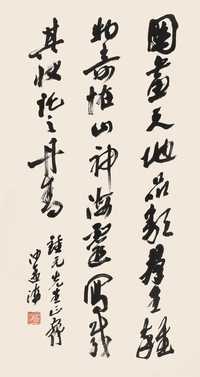 圖畫天地品類群生雜
物奇怪山神海靈寫載
其狀託之丹青
元先生正
沙孟海